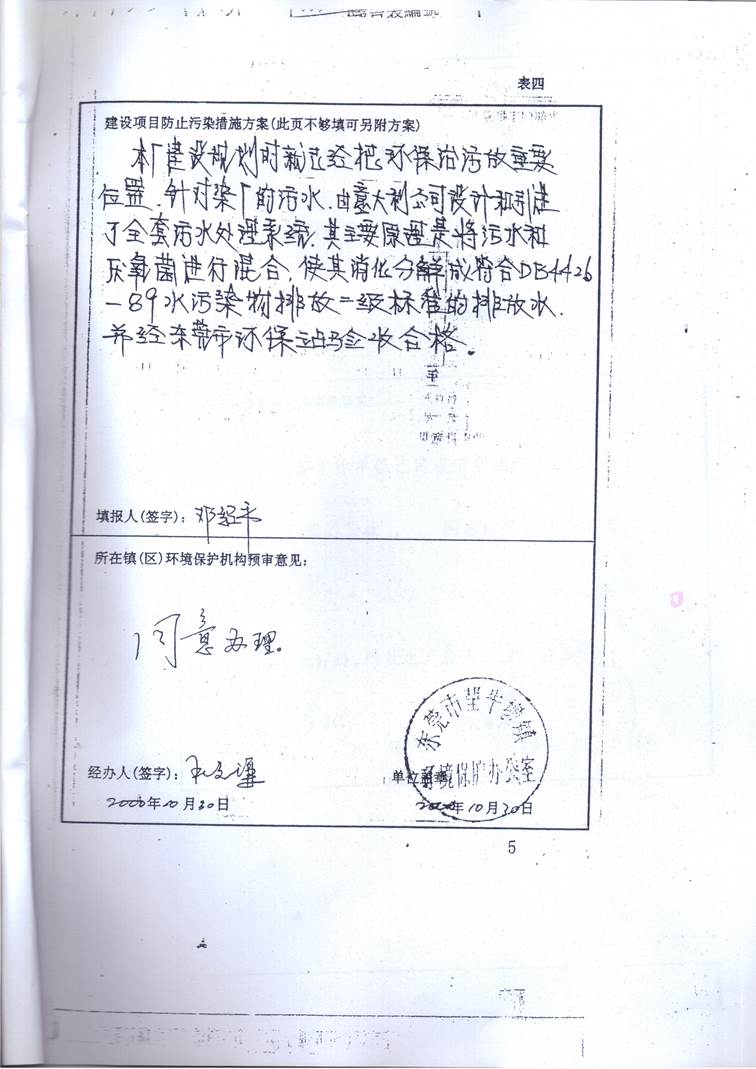 告表編號
表四
建设项目防止污染措施方案(此页不够填可另附方案)
本厂建设规划时就已经把环保治污放重要
位置.针对染厂的污水.由意大利公司设计和引进
了全套污水处理系统.其主要原理是将污水和
厌氧菌进行混合、使其消化分解成符合DB4426
-89水污染物排放二级标准的排放水.
并经东莞市环保站验收合格。
填报人(签字):
所在镇(区)环境保护机构预审意见:
同意办理。
东莞市望牛墩镇
环境保护办公室
经办人(签字):
单位盖章
2000年10月30日
2000年10月30日
5